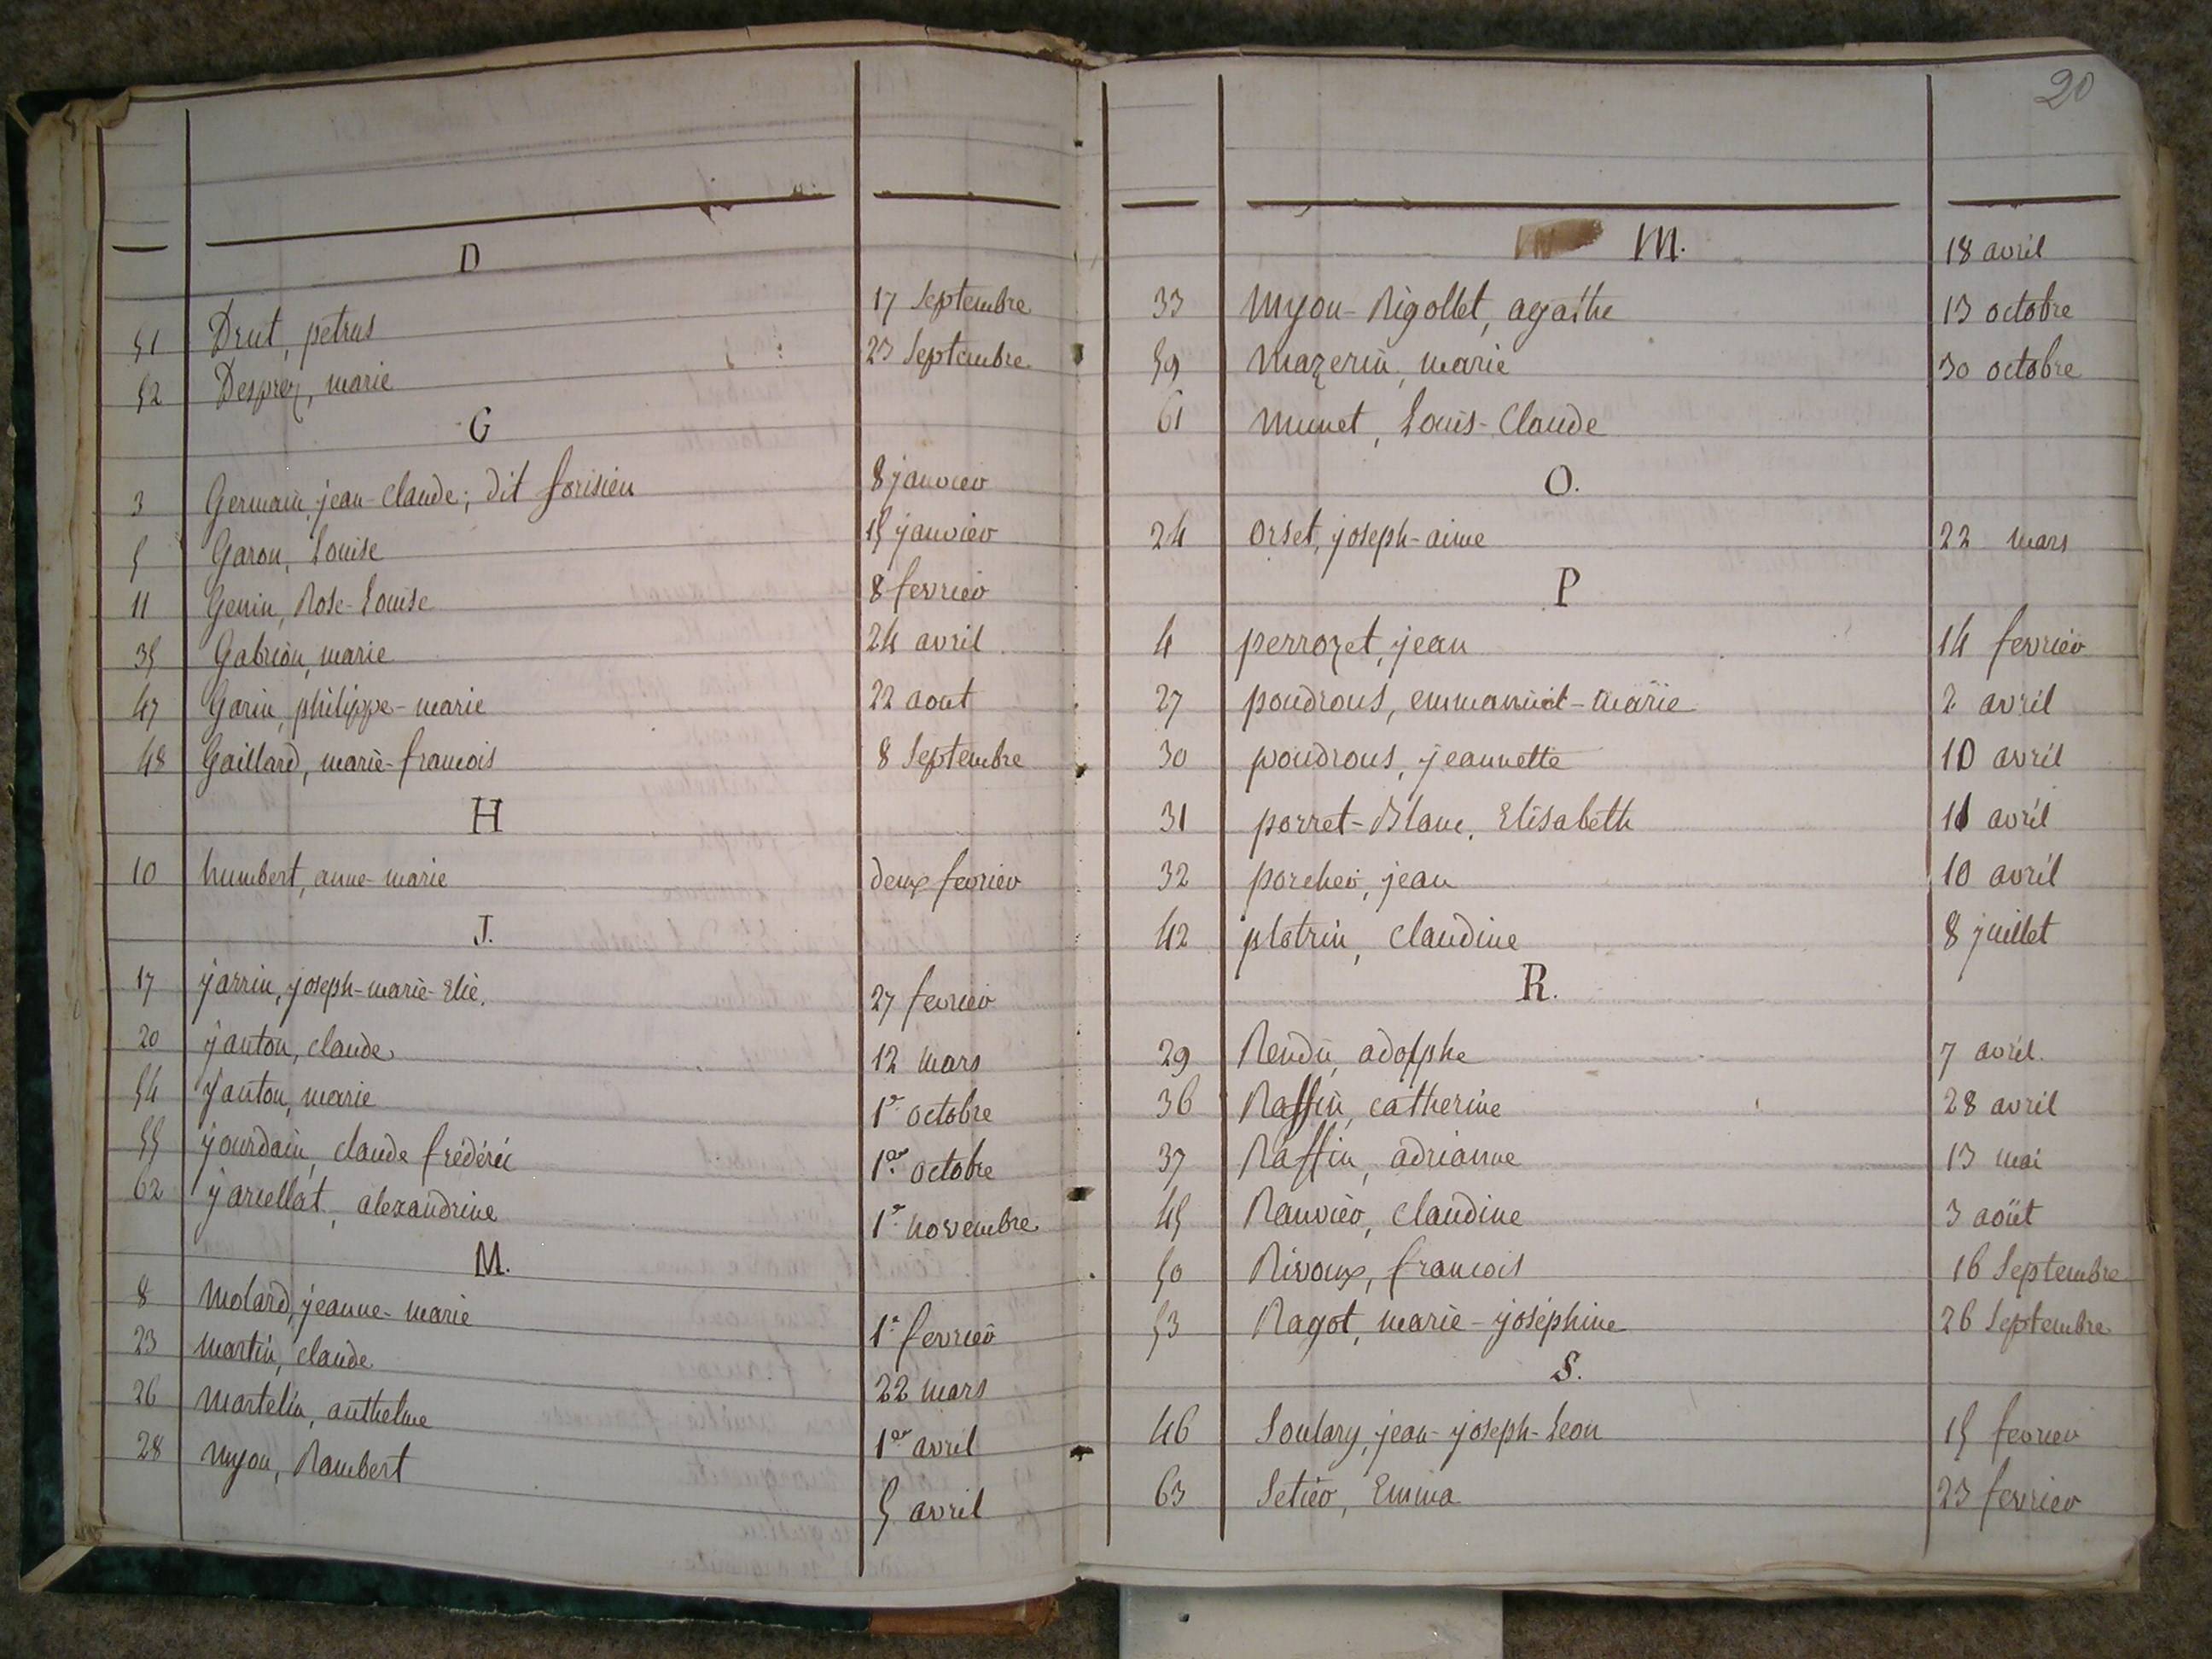 D
51 Drut, petrus 17 Septembre
52 Desprez, marie 23 Septembre
G
3 Germain, jean-claude; dit forisien 8 janvier
5 Garon, Louise 15 janvier
11 Genin, Rose-Louise 8 fevrier
35 Gabrion, marie 24 avril
47 Garin, philippe-marie 22 aout
48 Gaillard, marie-francois 8 Septembre
H
10 humbert, anne-marie deux fevrier
J.
17 jarrin, joseph-marie-Elie. 27 fevrier
20 janton, claude 12 mars
54 janton, marie 1er octobre
55 jourdain, claude frédéric 1er octobre
62 jarcellat, alexandrine 1er novembre
M.
8 Molard, jeanne-marie 1er fevrier
23 Martin, claude 22 mars
26 Martelin, anthelme 1er avril
28 Myon, Rambert 5 avril
20
M. 18 avril
33 Myon-Rigollet, agathe 13 octobre
59 Mazerin, marie 30 octobre
61 Munet, Louis-Claude
O.
24 Orset, joseph-aime 22 mars
P
4 perrozet, jean 14 fevrier
27 poudrous, -marie 2 avril
30 poudrous, jeannette 10 avril
31 porret-Blanc, Elisabeth 11 avril
32 porcher, jean 10 avril
42 platrin, claudine 8 juillet
R.
29 Rendu, adolphe 7 avril.
36 Raffin, catherine 28 avril
37 Raffin, adrianne 13 mai
45 Ranvier, claudine 3 août
50 Rivoux, francois 16 Septembre
53 Ragot, marie-joséphine 26 Septembre
S.
46 Soulary, jean-joseph-Leon 15 fevrier
63 Setier, Emma 23 fevrier